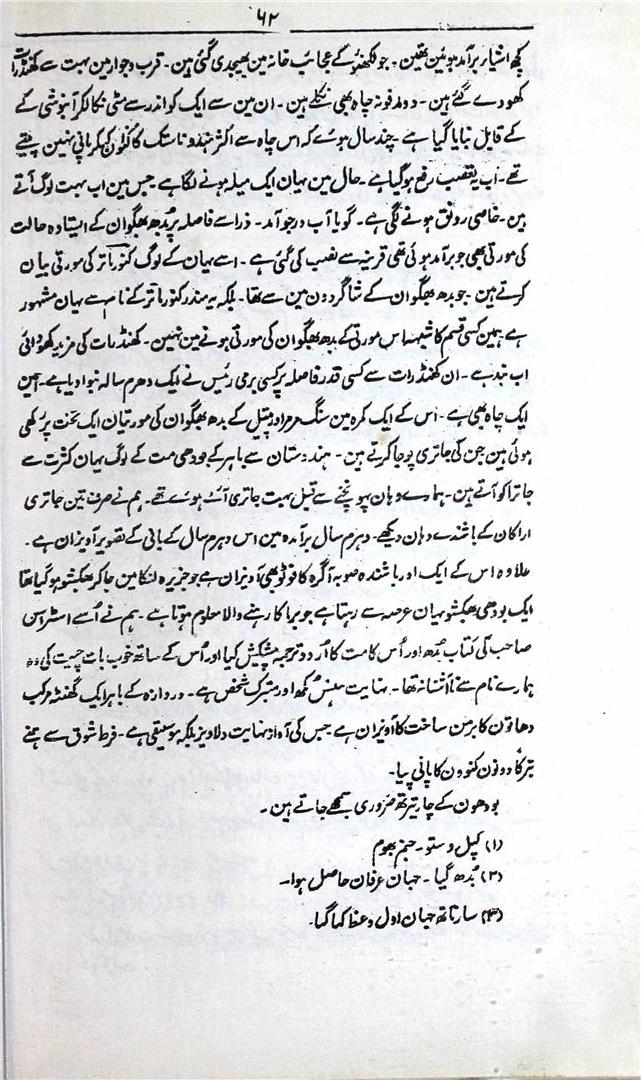 ۶۲
کچھ اشیار برآمد ہوئین تھین۔ جو لکھنؤ کے عجائب خانہ مین بھیجدی گئی ہین۔ قرب وجوار مین بہت سے کھنڈرات
کھودے گئے ہین۔ دو مدفونہ چاہ بھی نکلے ہین۔ ان مین سے ایک کو اندر سے مٹی نکالکر آبنوشی کے
کے قابل بنایا گیا ہے۔ چند سال ہوئے کہ اس چاہ سے اکثر ہندو ناستک کا کنوان کہکر پانی نہین پیتے
تھے۔ اب یہ تعصب رفع ہوگیا ہے۔ حال مین یہان ایک میلہ ہونے لگا ہے جس مین اب بہت لوگ آتے
ہین۔ خاصی رونق ہونے لگی ہے۔ گویا آب در جو آمد۔ ذرا سے فاصلہ پر بُدھ بھگوان کے ایستادہ حالت
کی مورتی بھی جو برآمد ہوئی تھی قرینہ سے نصب کی گئی ہے۔ اسے یہان کے لوگ کنور ناتر کی مورتی بیان
کرتے ہین۔ جو بدھ بھگوان کے شاگردون مین سے تھا۔ بلکہ یہ مندر کنور ناتر کے نام سے یہان مشہور
ہے ہمین کسی قسم کا شبہہ اس مورتی کے بدھ بھگوان کی مورتی ہونے مین نہین۔ کھنڈرات کی مزید کھودائی
اب بند ہے۔ ان کھنڈرات سے کسی قدر فاصلہ پر کسی برمی رئیس نے ایک دھرم سالہ بنوا دیا ہے۔ ہمین
ایک چاہ بھی ہے۔ اس کے ایک کمرہ مین سنگ مرمر اور پیتل کے بدھ بھگوان کی مورتیان ایک تخت پر رکھی
ہوئی ہین جن کی جاتری پوجا کرتے ہین۔ ہندوستان سے باہر کے بودھی مت کے لوگ یہان کثرت سے
جاترا کو آتے ہین۔ ہمارے وہان پہونچنے سے قبل بہت جاتری آئے ہوئے تھے۔ ہم نے صرف تین جاتری
اراکان کے باشندے وہان دیکھے۔ دہرم سال برآمدہ مین اس دہرم سال کے بانی کے تصویر آویزان ہے۔
علاوہ اس کے ایک اور باشندہ صوبہ آگرہ کا فوٹو بھی آویزان ہے جو جزیرہ لنکا مین جاکر بھکشو ہوگیا تھا
ایک بودھی بھکشو یہان عرصہ سے رہتا ہے جو برما کا رہنے والا معلوم ہوتا ہے۔ ہم نے اُسے اسٹراس
صاحب کی کتاب بُدھ اور اُس کا مت کا اُردو ترجمہ پیشکیش کیا اور اُس کے ساتھ خوب بات چیت کی وہ
ہمارے نام سے نا آشنا نہ تھا۔ نہایت ہنس مکھ اور متبرک شخص ہے۔ دروازہ کے باہر ایک گھنٹہ مرکب
دھاتون کا برمن ساخت کا آویزان ہے جس کی آواز نہایت دلاویز بلکہ موسیقی ہے۔ فرط شوق سے ہمنے
تبرکاً دونون کنوون کا پانی پیا۔
بودھون کے چار تیرتھ ضروری سمجھے جاتے ہین۔
(۱) کپل وستو۔ جنم بھوم
(۲) بُدھ گیا۔ جہان عرفان حاصل ہوا۔
(۳) سارناتھ جہان اول وعظ کہا گیا۔